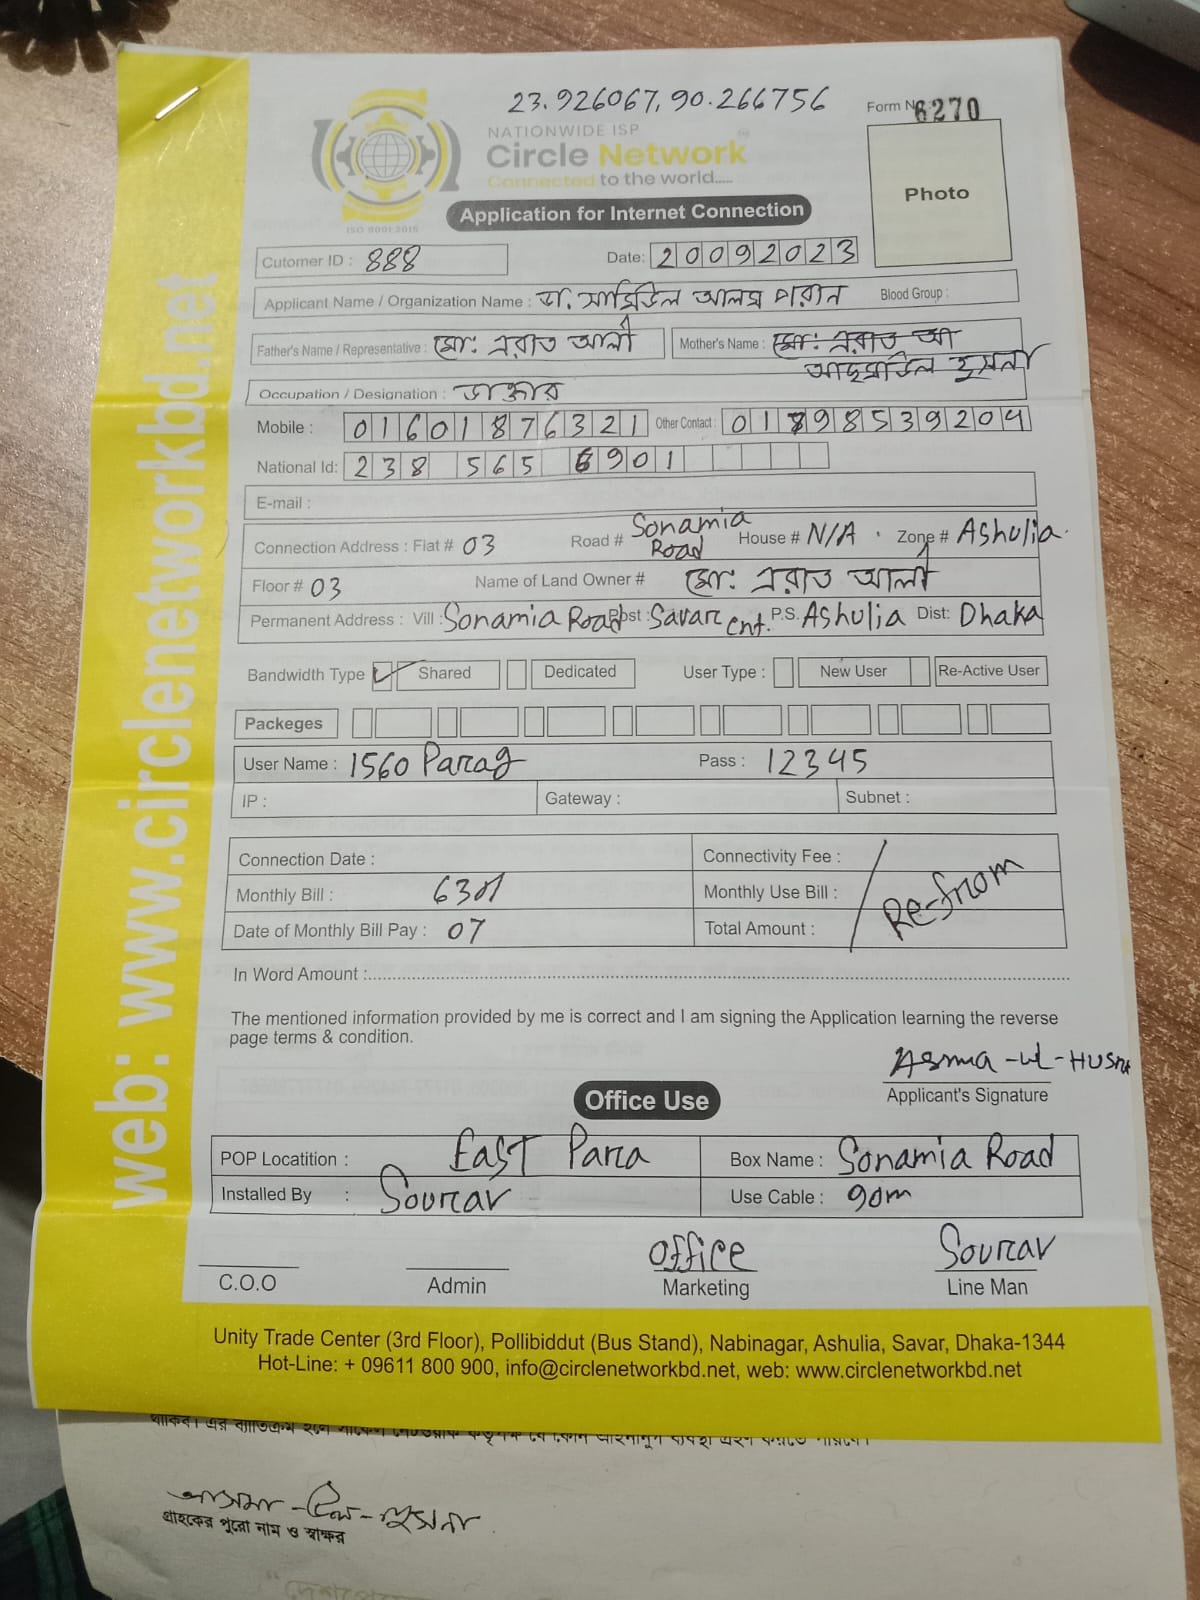 23.926067, 90.266756
Form No 6270
NATIONWIDE ISP
Circle Network
Connected to the world.....
ISO 9001:2015
Photo
Application for Internet Connection
Cutomer ID : 888 Date: 20092023
Applicant Name / Organization Name : ডা. আলম Blood Group :
Father's Name / Representative : মো: এরাত আলী Mother's Name : মো: এরাত আ
হুসনা
Occupation / Designation : ডাক্তার
Mobile : 01601876321 Other Contact : 01798539204
National Id: 238 565 6901
E-mail :
Connection Address : Flat # 03 Road # Sonamia Road House # N/A . Zone # Ashulia.
Floor # 03 Name of Land Owner # মো: এরাত আলী
Permanent Address : Vill : Sonamia Road Post : Savar Cnt. P.S. Ashulia Dist: Dhaka
Bandwidth Type ✓ Shared Dedicated User Type : New User Re-Active User
Packeges
User Name : 1560 Parag Pass : 12345
IP : Gateway : Subnet :
Connection Date : Connectivity Fee :
Monthly Bill : 630/ Monthly Use Bill :
Re-from
Date of Monthly Bill Pay : 07 Total Amount :
In Word Amount :
The mentioned information provided by me is correct and I am signing the Application learning the reverse
page terms & condition.
Asma-ul-HUSNA
Applicant's Signature
Office Use
POP Locatition : East Para Box Name : Sonamia Road
Installed By : Sourav Use Cable : 90m
Office Sourav
C.O.O Admin Marketing Line Man
Unity Trade Center (3rd Floor), Pollibiddut (Bus Stand), Nabinagar, Ashulia, Savar, Dhaka-1344
Hot-Line: + 09611 800 900, info@circlenetworkbd.net, web: www.circlenetworkbd.net
web: www.circlenetworkbd.net
আসমা-উল-হুসনা
গ্রাহকের পুরো নাম ও স্বাক্ষর